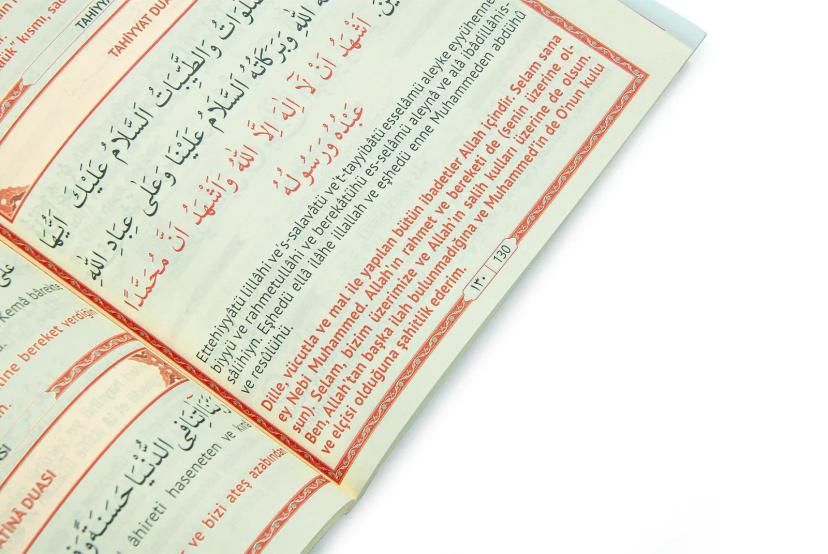 TAHİYYAT DUA
لَوَاتُ وَالطَّيِّبَاتُ اَلسَّلَامُ عَلَيْكَ اَيُّهَا
اللّٰهِ وَبَرَكَاتُهُ اَلسَّلَامُ عَلَيْنَا وَعَلٰى عِبَادِ اللّٰهِ
اَشْهَدُ اَنْ لَا اِلٰهَ اِلَّا اللّٰهُ وَاَشْهَدُ اَنَّ مُحَمَّدًا
عَبْدُهُ وَرَسُولُهُ
Ettehiyyâtü lillâhi ve's-salavâtü ve't-tayyibâtü esselâmü aleyke eyyühenne
biyyü ve rahmetullâhi ve berekâtühü es-selâmü aleynâ ve alâ ibâdillâhis-
sâlihiyn. Eşhedü ellâ ilâhe illallah ve eşhedü enne Muhammeden abdühû
ve resûlühü.
Dille, vücutla ve mal ile yapılan bütün ibadetler Allah içindir. Selam sana
ey Nebi Muhammed. Allah'ın rahmet ve bereketi de (senin üzerine ol-
sun). Selam, bizim üzerimize ve Allah'ın salih kulları üzerine de olsun.
Ben, Allah'tan başka ilah bulunmadığına ve Muhammed'in de O'nun kulu
ve elçisi olduğuna şahitlik ederim.
١٣٠ 130
kısmı,
TAHİYY
Kemâ bârekte
bereket verdiğin
ATİNÂ DUASI
اٰتِنَا فِى الدُّنْيَا حَسَنَةً وَفِى
âhireti haseneten ve kınâ
ve bizi ateş azabından